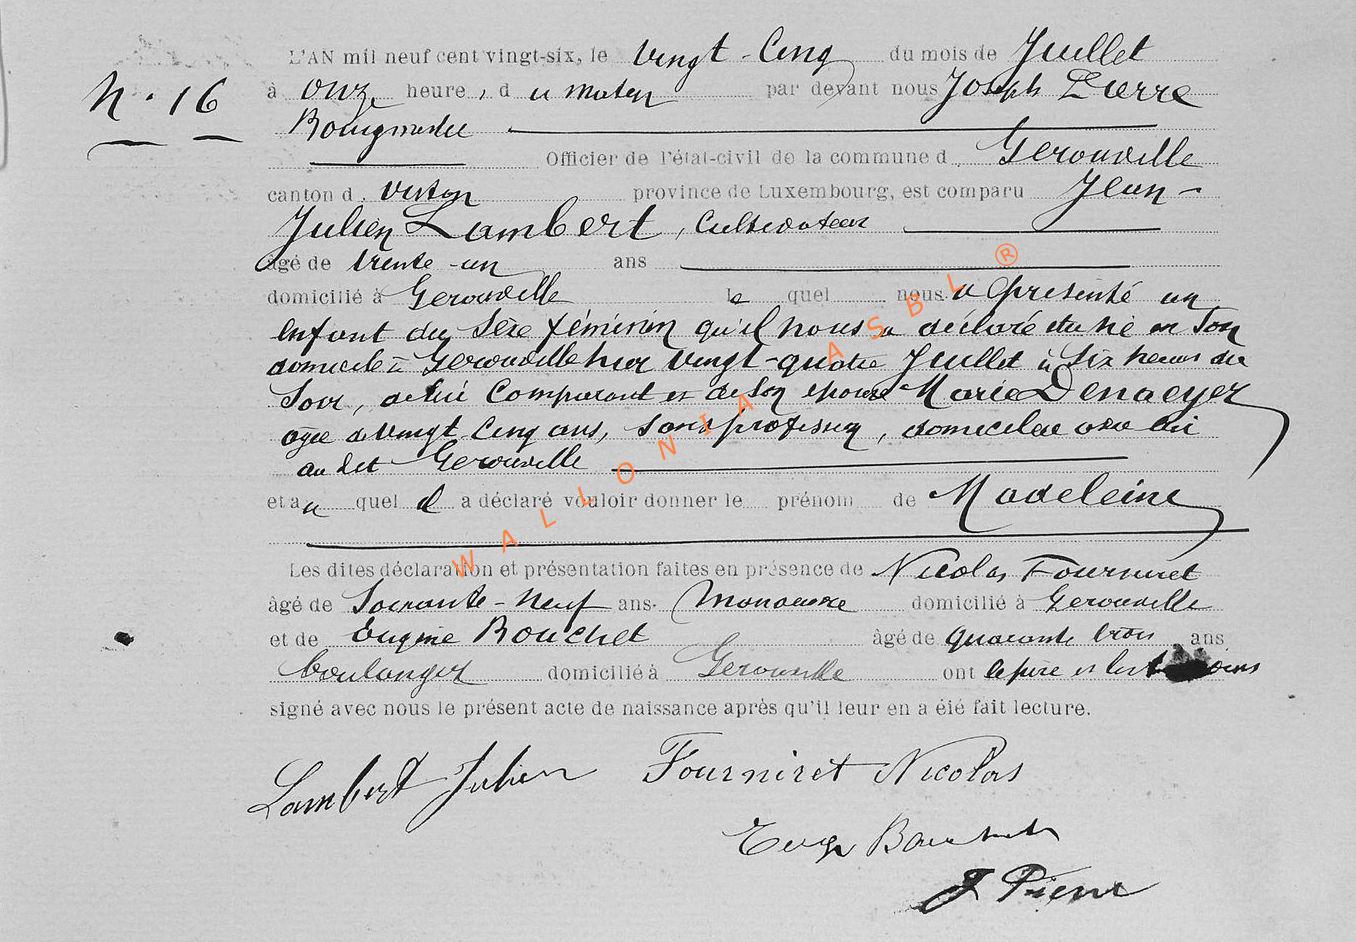 N. 16
L'AN mil neuf cent vingt-six, le vingt-cinq du mois de Juillet
à onze heure, du matin par devant nous Joseph Pierre
Bourgmestre
Officier de l'état-civil de la commune d. Gerouville
canton d. Virton province de Luxembourg, est comparu Jean-
Julien Lambert, cultivateur
âgé de trente-un ans
domicilié à Gerouville le quel nous a présenté un
enfant du sexe féminin qu'il nous a déclaré être né en son
domicile à Gerouville hier vingt-quatre Juillet à six heures du
soir, de lui comparant et de son épouse Marie Denaeyer
agée de vingt cinq ans, sans profession, domiciliée avec lui
au dit Gerouville
et au quel il a déclaré vouloir donner le prénom de Madeleine
Les dites déclaration et présentation faites en présence de Nicolas Fourniret
âgé de soixante-neuf ans. domicilié à Gerouville
et de Eugène Bouchet âgé de quarante trois ans
boulanger domicilié à Gerouville ont le père et les témoins
signé avec nous le présent acte de naissance après qu'il leur en a été fait lecture.
Lambert Julien Fourniret Nicolas
Eug Bouchet
J Pierre
WALLONIA ASBL ®